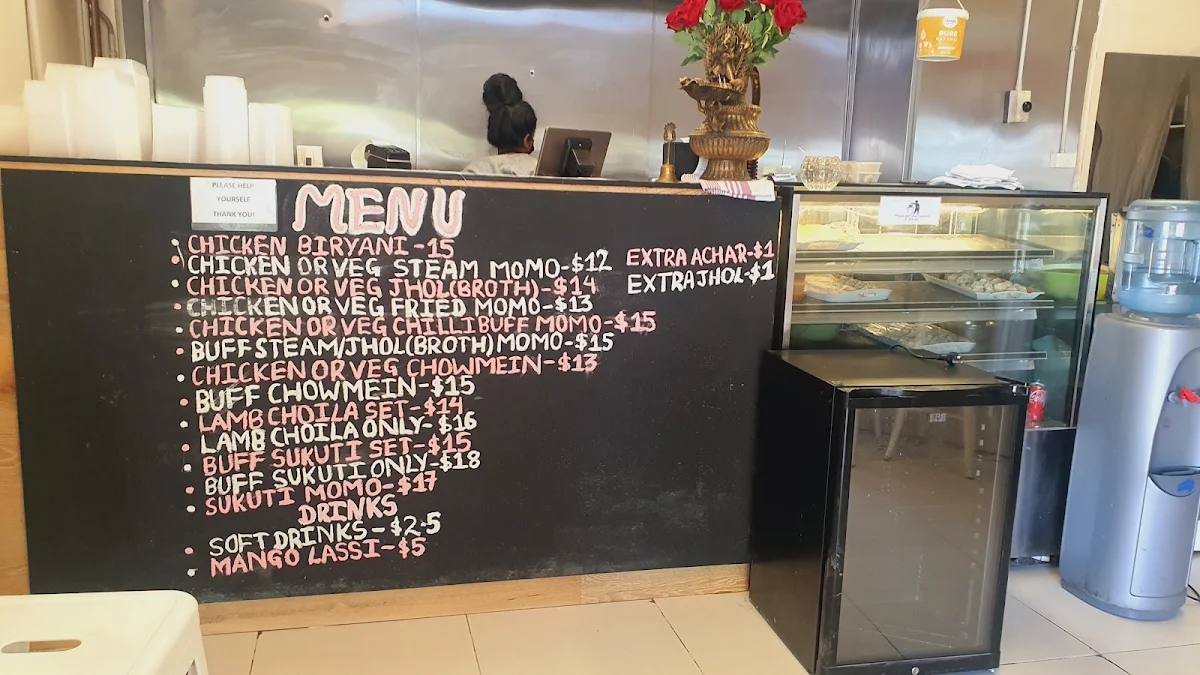 PLEASE HELP
YOURSELF
THANK YOU!
MENU
CHICKEN BIRYANI-15
CHICKEN OR VEG STEAM MOMO-$12
CHICKEN OR VEG JHOL(BROTH)-$14
CHICKEN OR VEG FRIED MOMO-$13
CHICKEN OR VEG CHILLI BUFF MOMO-$15
BUFF STEAM/JHOL(BROTH) MOMO-$15
CHICKEN OR VEG CHOWMEIN-$13
BUFF CHOWMEIN-$15
LAMB CHOILA SET-$14
LAMB CHOILA ONLY-$16
BUFF SUKUTI SET-$15
BUFF SUKUTI ONLY-$18
SUKUTI MOMO-$17
DRINKS
SOFT DRINKS-$2.5
MANGO LASSI-$5
EXTRA ACHAR-$1
EXTRA JHOL-$1